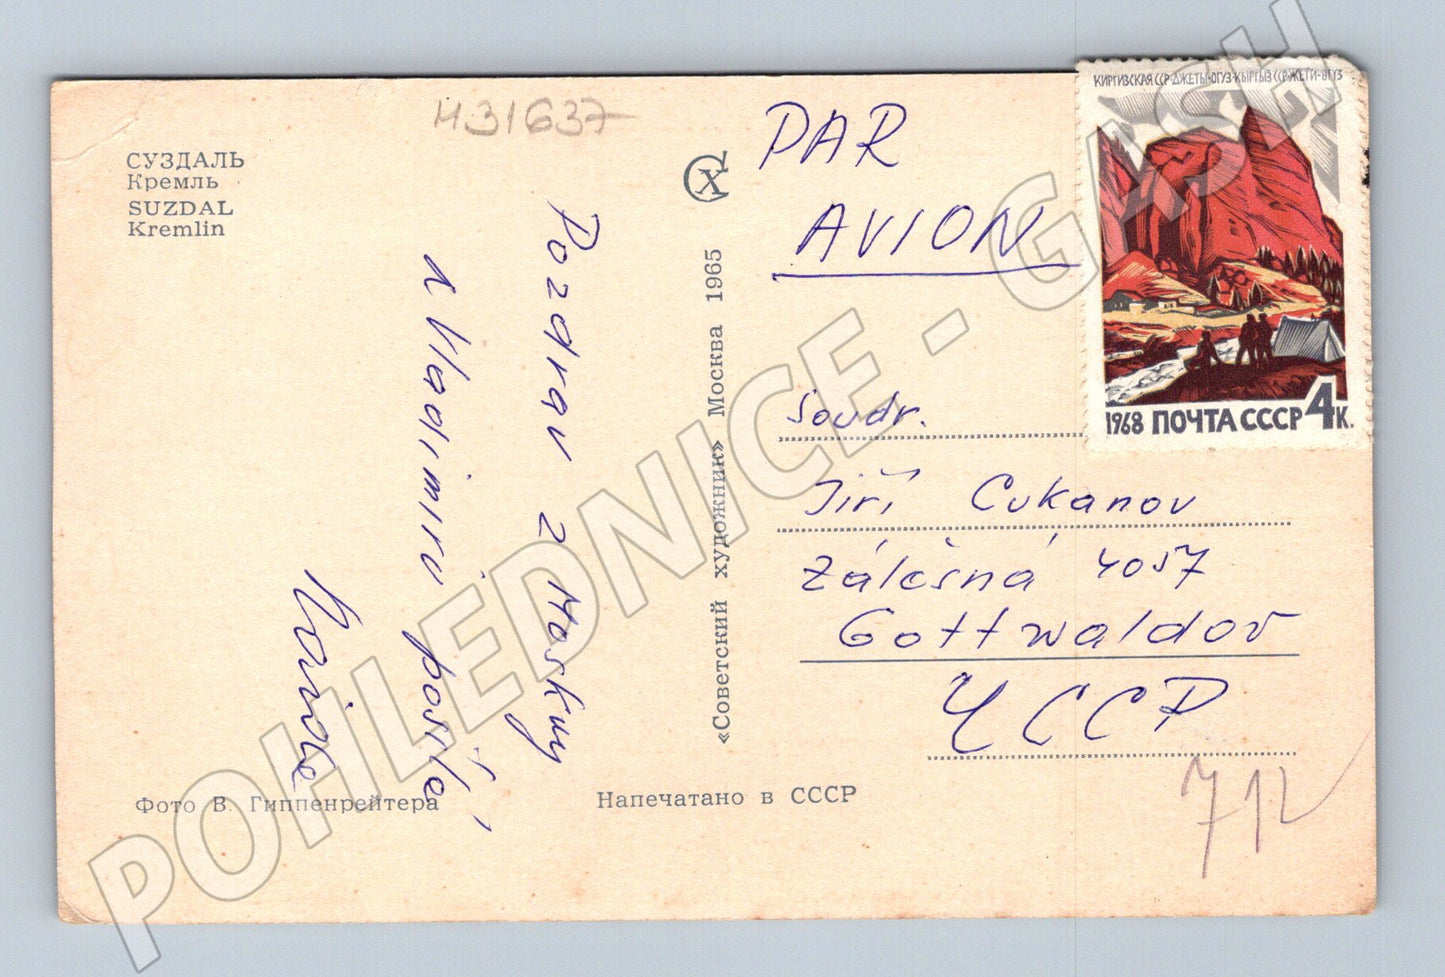 И31637
СУЗДАЛЬ
Кремль
SUZDAL
Kremlin
Pozdrav z Moskvy
a Vladimiru posílá
Фото В. Гиппенрейтера
Напечатано в СССР
«Советский художник» Москва 1965
PAR
AVION
КИРГИЗСКАЯ ССР·ДЖЕТЫ-ОГУЗ·КЫРГЫЗ ССР·ЖЕТИ-ОГУЗ
1968 ПОЧТА СССР 4К.
Soudr.
Jiří Cukanov
Zálešná 4057
Gottwaldov
ЧССР
712
POHLEDNICE - GASH